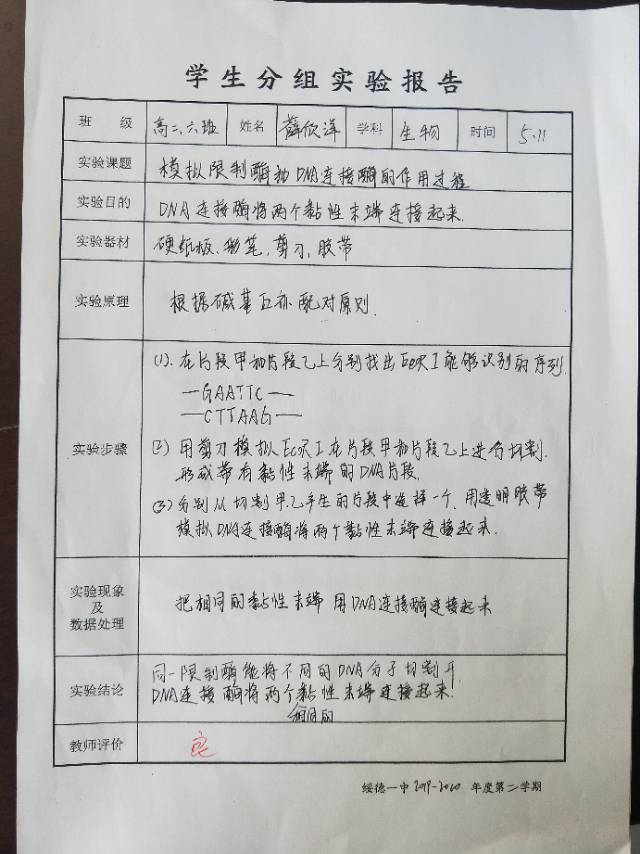 学生分组实验报告
班级 高二、六班 姓名 薛欣洋 学科 生物 时间 5.11
实验课题 模拟限制酶和DNA连接酶的作用过程
实验目的 DNA连接酶将两个黏性末端连接起来.
实验器材 硬纸板、彩笔,剪刀,胶带
实验原理 根据碱基互补配对原则.
实验步骤
(1).在片段甲和片段乙上分别找出EcoRI能够识别的序列.
—GAATTC—
—CTTAAG—
(2)用剪刀模拟EcoRI在片段甲和片段乙上进行切割.
形成带有黏性末端的DNA片段.
(3)分别从切割甲.乙产生的片段中选择一个.用透明胶带
模拟DNA连接酶将两个黏性末端连接起来.
实验现象
及
数据处理
把相同的黏性末端用DNA连接酶连接起来
实验结论
同一限制酶能将不同的DNA分子切割开
DNA连接酶将两个黏性末端连接起来!
相同的
教师评价 良
绥德一中2019-2020年度第二学期